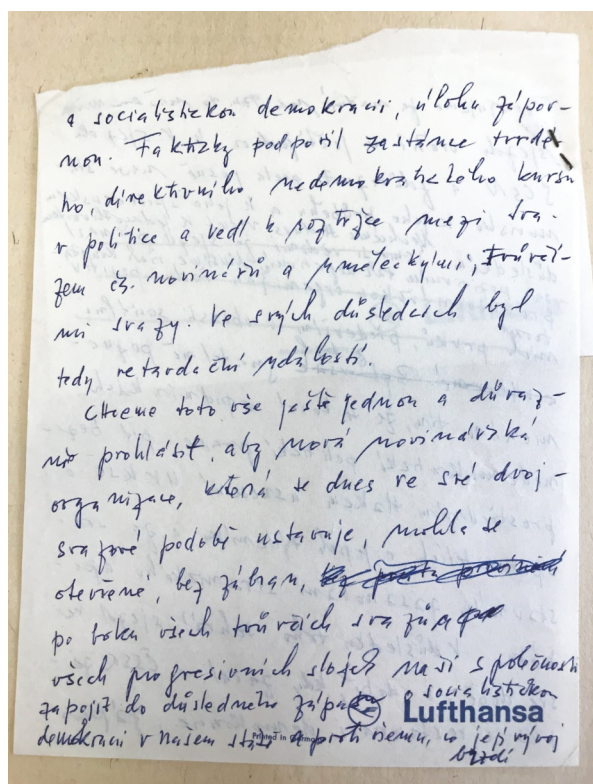 a socialistickou demokracii, úlohu zápor-
nou. Fakticky podpořil zastánce tvrdé-
ho, direktivního nedemokratického kursu
v politice a vedl k roztržce mezi sva-
zem čs. novinářů a uměleckými, tvůrčí-
mi svazy. Ve svých důsledcích byl
tedy retardační událostí.
Chceme toto vše ještě jednou a důraz-
ně prohlásit, aby nová novinářská
organizace, která se dnes ve své dvoj-
svazové podobě ustavuje, mohla se
otevřeně, bez zábran,
po boku všech tvůrčích svazů a
všech progresivních složek naší společnosti
zapojit do důsledného zápasu o socialistickou
Lufthansa
Printed in Germany
demokracii v našem státě a proti všemu, co její vývoj
brzdí